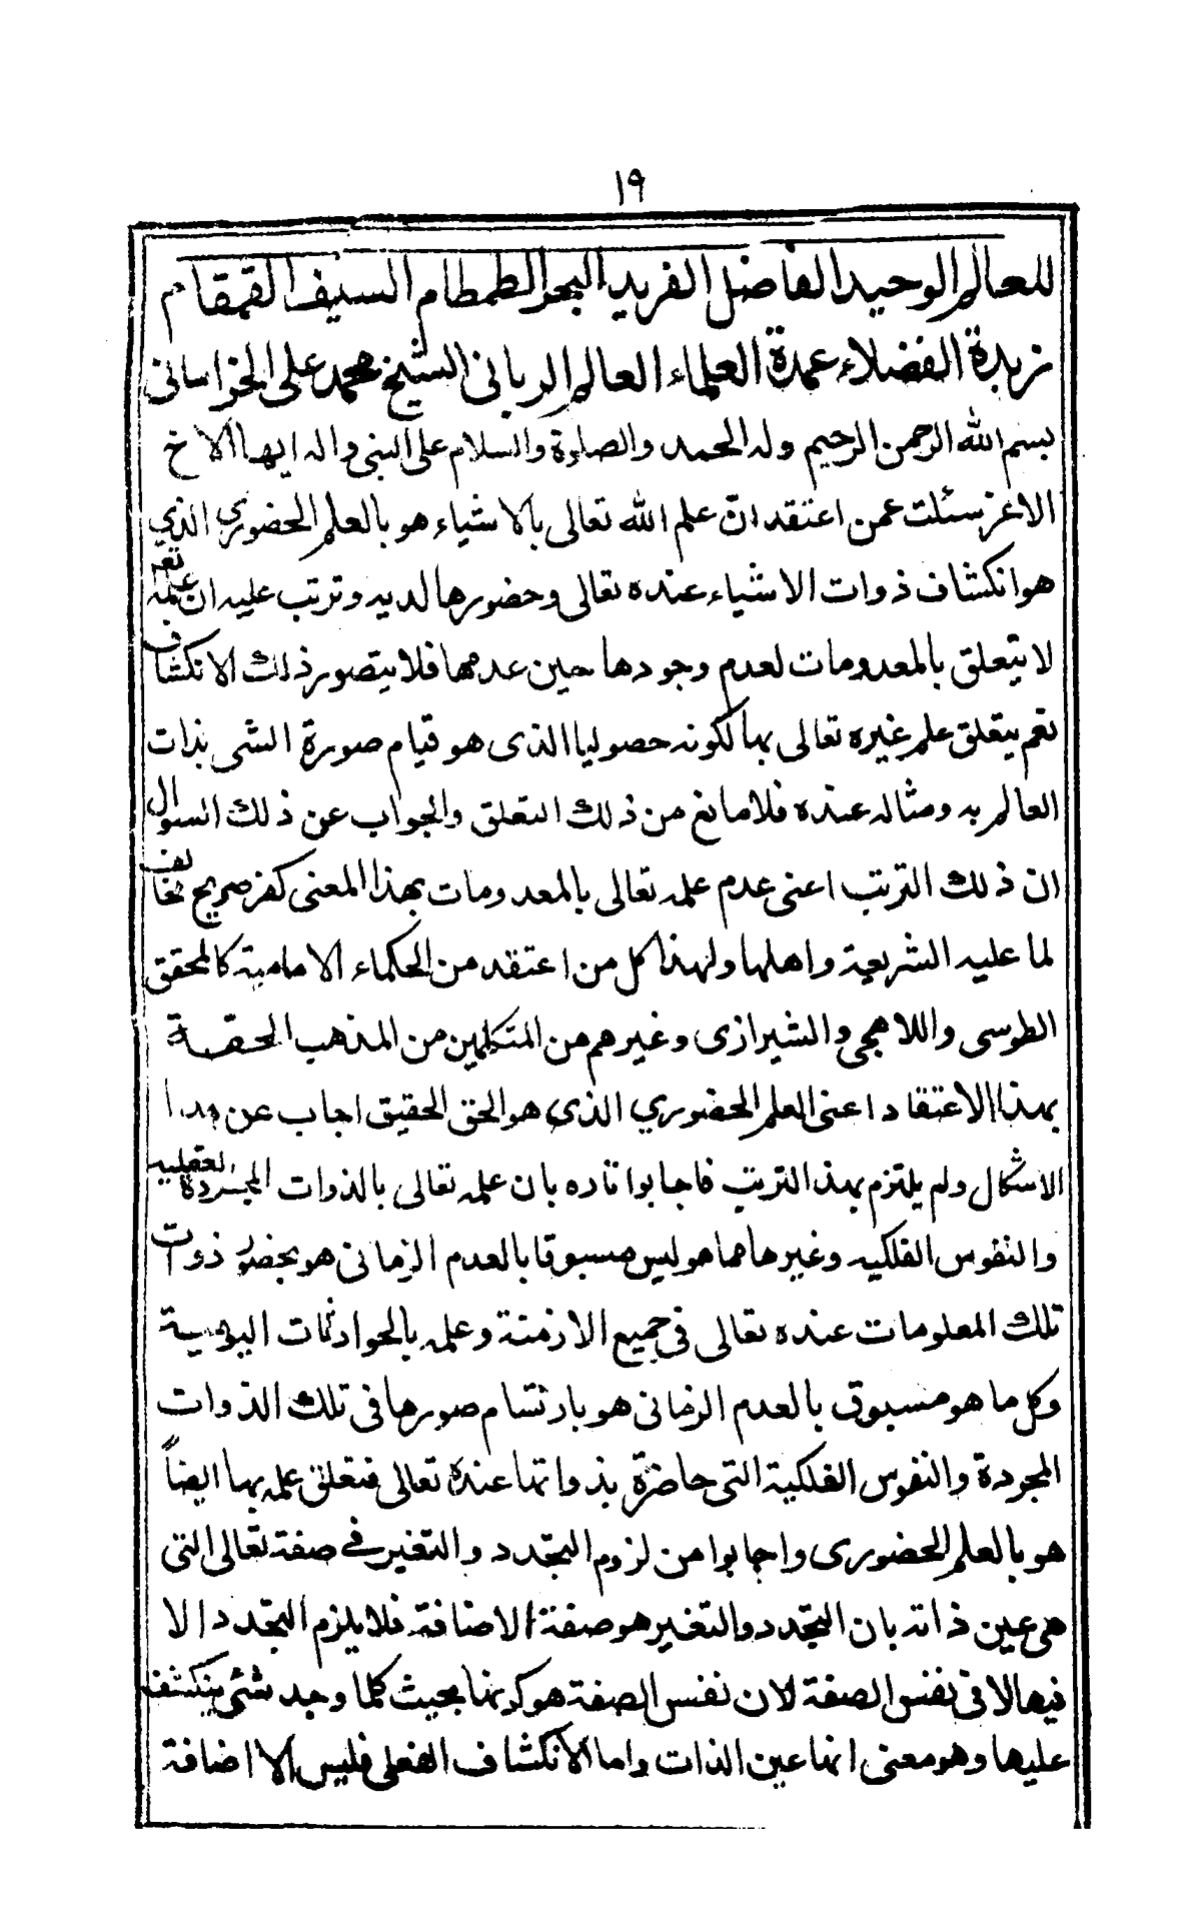 ١٩
للعالم الوحيد الفاضل الفريد البحر الطمطام السيف القمقام
زبدة الفضلاء عمدة العلماء العالم الربانى الشيخ محمد على الخراسانى
بسم الله الرحمن الرحيم وله الحمد والصلوة والسلام على النبى واله ايها الاخ
الاعز سئلت عمن اعتقد انّ علم الله تعالى بالاشياء هو بالعلم الحضوري الذي
هو انكشاف ذوات الاشياء عنده تعالى وحضورها لديه وترتب عليه ان علمه تعم
لا يتعلق بالمعدومات لعدم وجودها حين عدمها فلا يتصور ذلك الانكشاف
نعم يتعلق علم غيره تعالى بها لكونه حصوليا الذى هو قيام صورة الشى بذات
العالم به ومثاله عنده فلا مانع من ذلك التعلق والجواب عن ذلك السوال
ان ذلك الترتب اعنى عدم علمه تعالى بالمعدومات بهذا المعنى كفر صريح مخالف
لما عليه الشريعة واهلها ولهذا كل من اعتقد من الحكماء الامامية كالمحقق
الطوسى واللاهجى والشيرازى وغيرهم من المتكلمين من المذهب الحقة
بهذا الاعتقاد اعنى العلم الحضوري الذى هو الحق الحقيق اجاب عن هذا
الاشكال ولم يلتزم بهذا الترتب فاجابوا تاره بان علمه تعالى بالذوات المجردة العقليه
والنفوس الفلكيه وغيرها مما هو ليس مسبوقا بالعدم الزمانى هو بحضور ذوات
تلك المعلومات عنده تعالى فى جميع الازمنة وعلمه بالحوادثات اليومية
وكل ما هو مسبوق بالعدم الزمانى هو بارتسام صورها فى تلك الذوات
المجردة والنفوس الفلكية التى حاضرة بذواتها عنده تعالى فتعلق علمه بها ايضاً
هو بالعلم الحضورى واجابوا من لزوم التجدد والتغير فے صفة تعالى التى
هى عين ذاته بان التجدد والتغير هو صفة الاضافة فلا يلزم التجدد الا
فيها لا فى نفس الصفة لان نفس الصفة هو كونها بحيث كلما وجد شئى ينكشف
عليها وهو معنى انها عين الذات واما الانكشاف الفعلى فليس الا اضافة